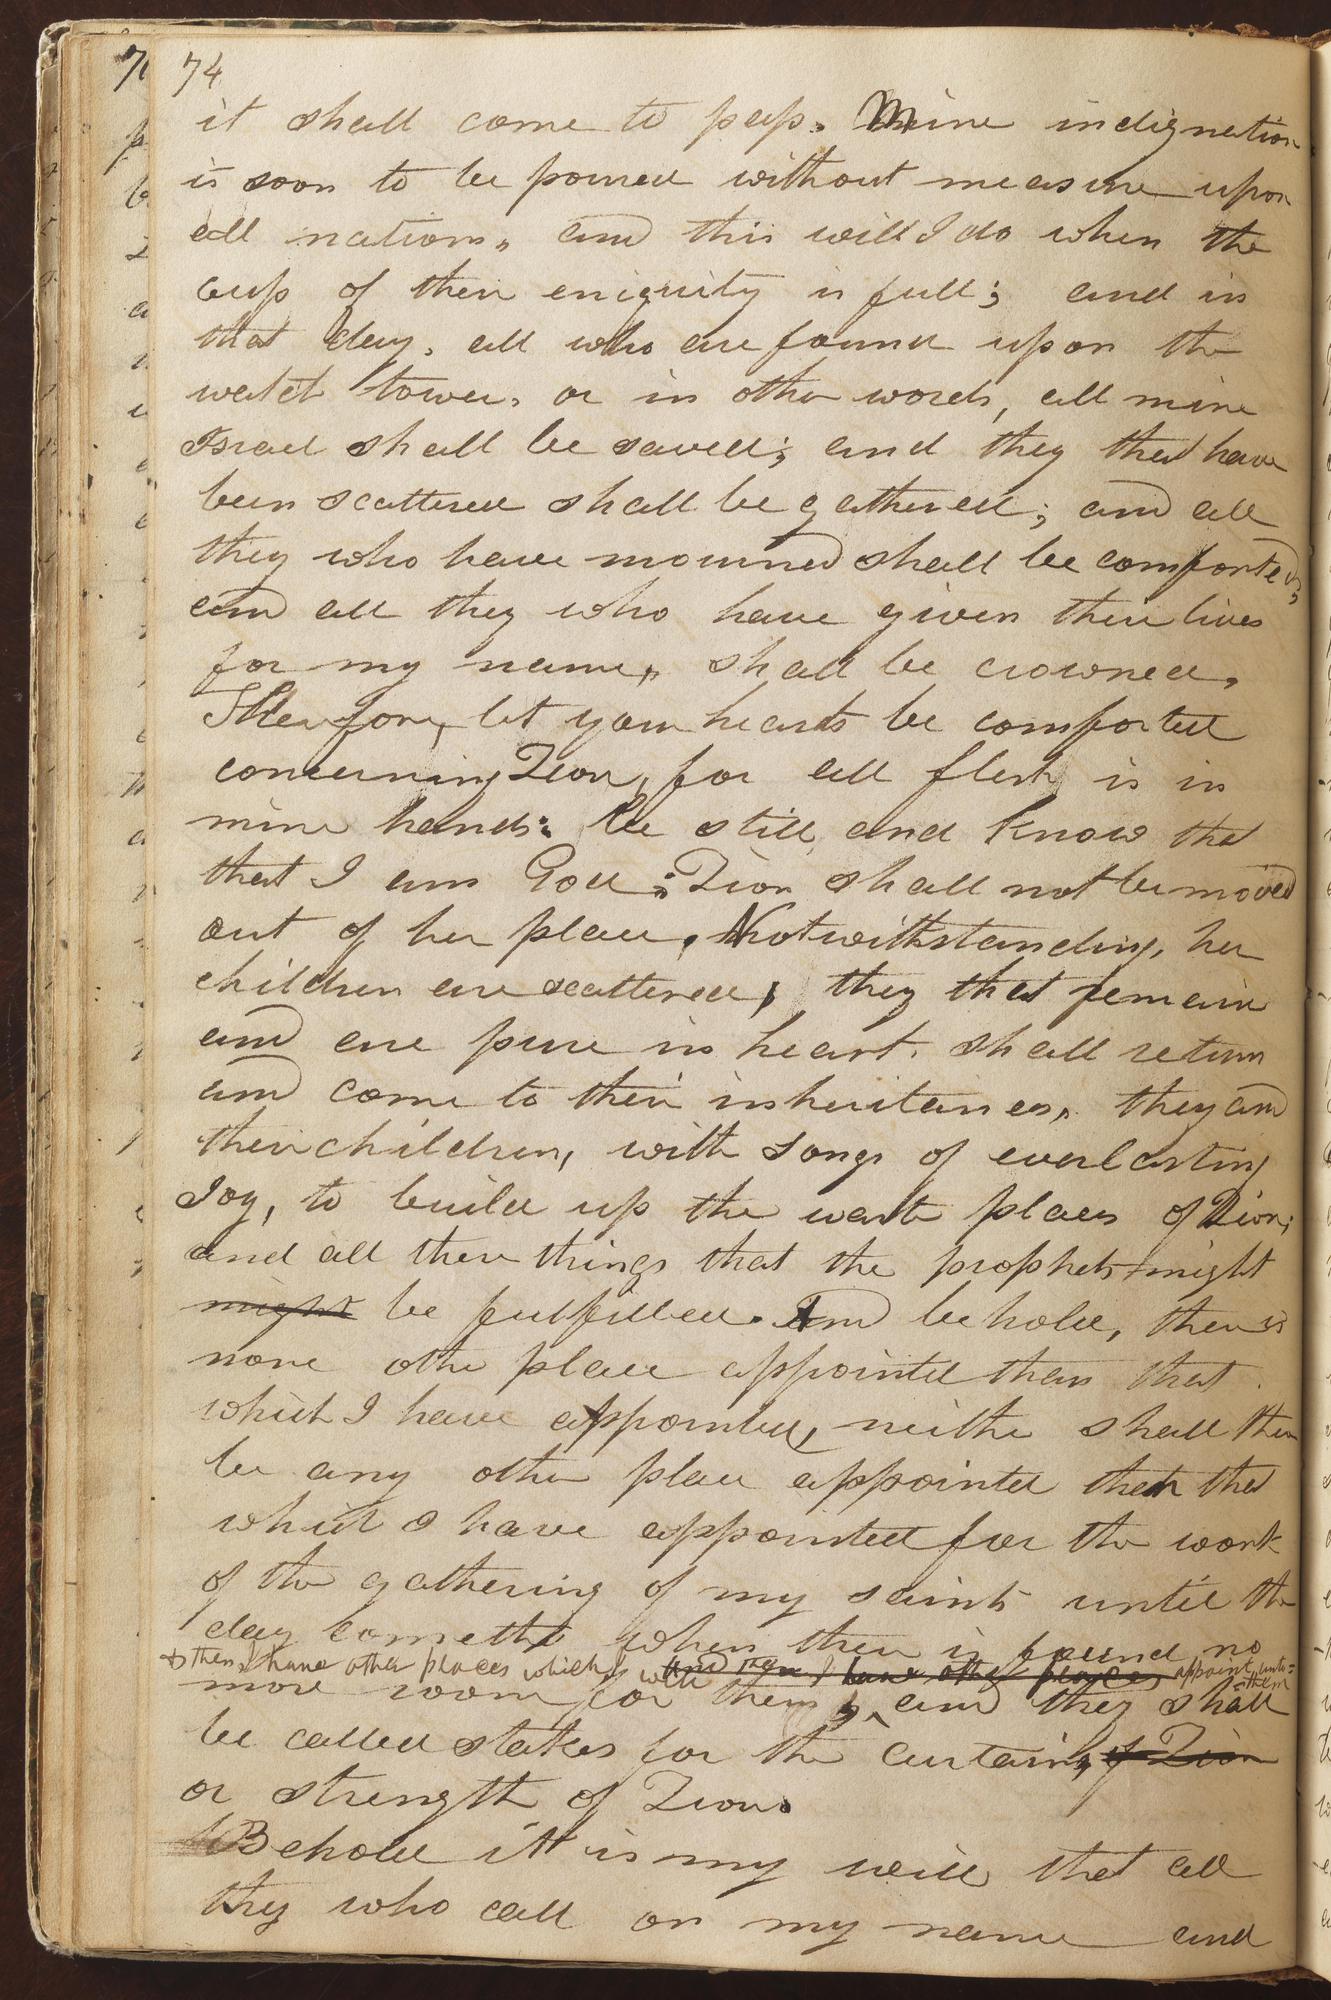 74
it shall come to pass. Mine indignation
is soon to be poured without measure upon
all nations, and this will I do when the
cup of their eniquity is full; and in
that day, all who are found upon the
watch tower, or in other words, all mine
Israel shall be saved; and they that have
been scattered shall be gathered; and all
they who have mourned shall be comforted;
and all they who have given their lives
for my name, shall be crowned.
Therefore, let your hearts be comforted
concerning Zion, for all flesh is in
mine hands: be still and know that
that I am God: Zion shall not be moved
out of her place. Notwithstanding, her
children are scattered, they that remain
and are pure in heart, shall return
and come to their inheritances, they and
their children, with songs of everlasting
Joy, to build up the waste places of Zion;
and all these things that the prophets might
might be fulfilled. And behold, there is
none other place appointed than that
which I have appointed, neither shall there
be any other place appointed than that
which I have appointed for the work
of the gathering of my saints until the
day cometh when there is found no
& then I have other places which I will and then I have other places appoint unto them
more room for them; and they shall
be called stakes for the curtains, of Zion
or strength of Zion.
Behold it is my will that all
they who call on my name and